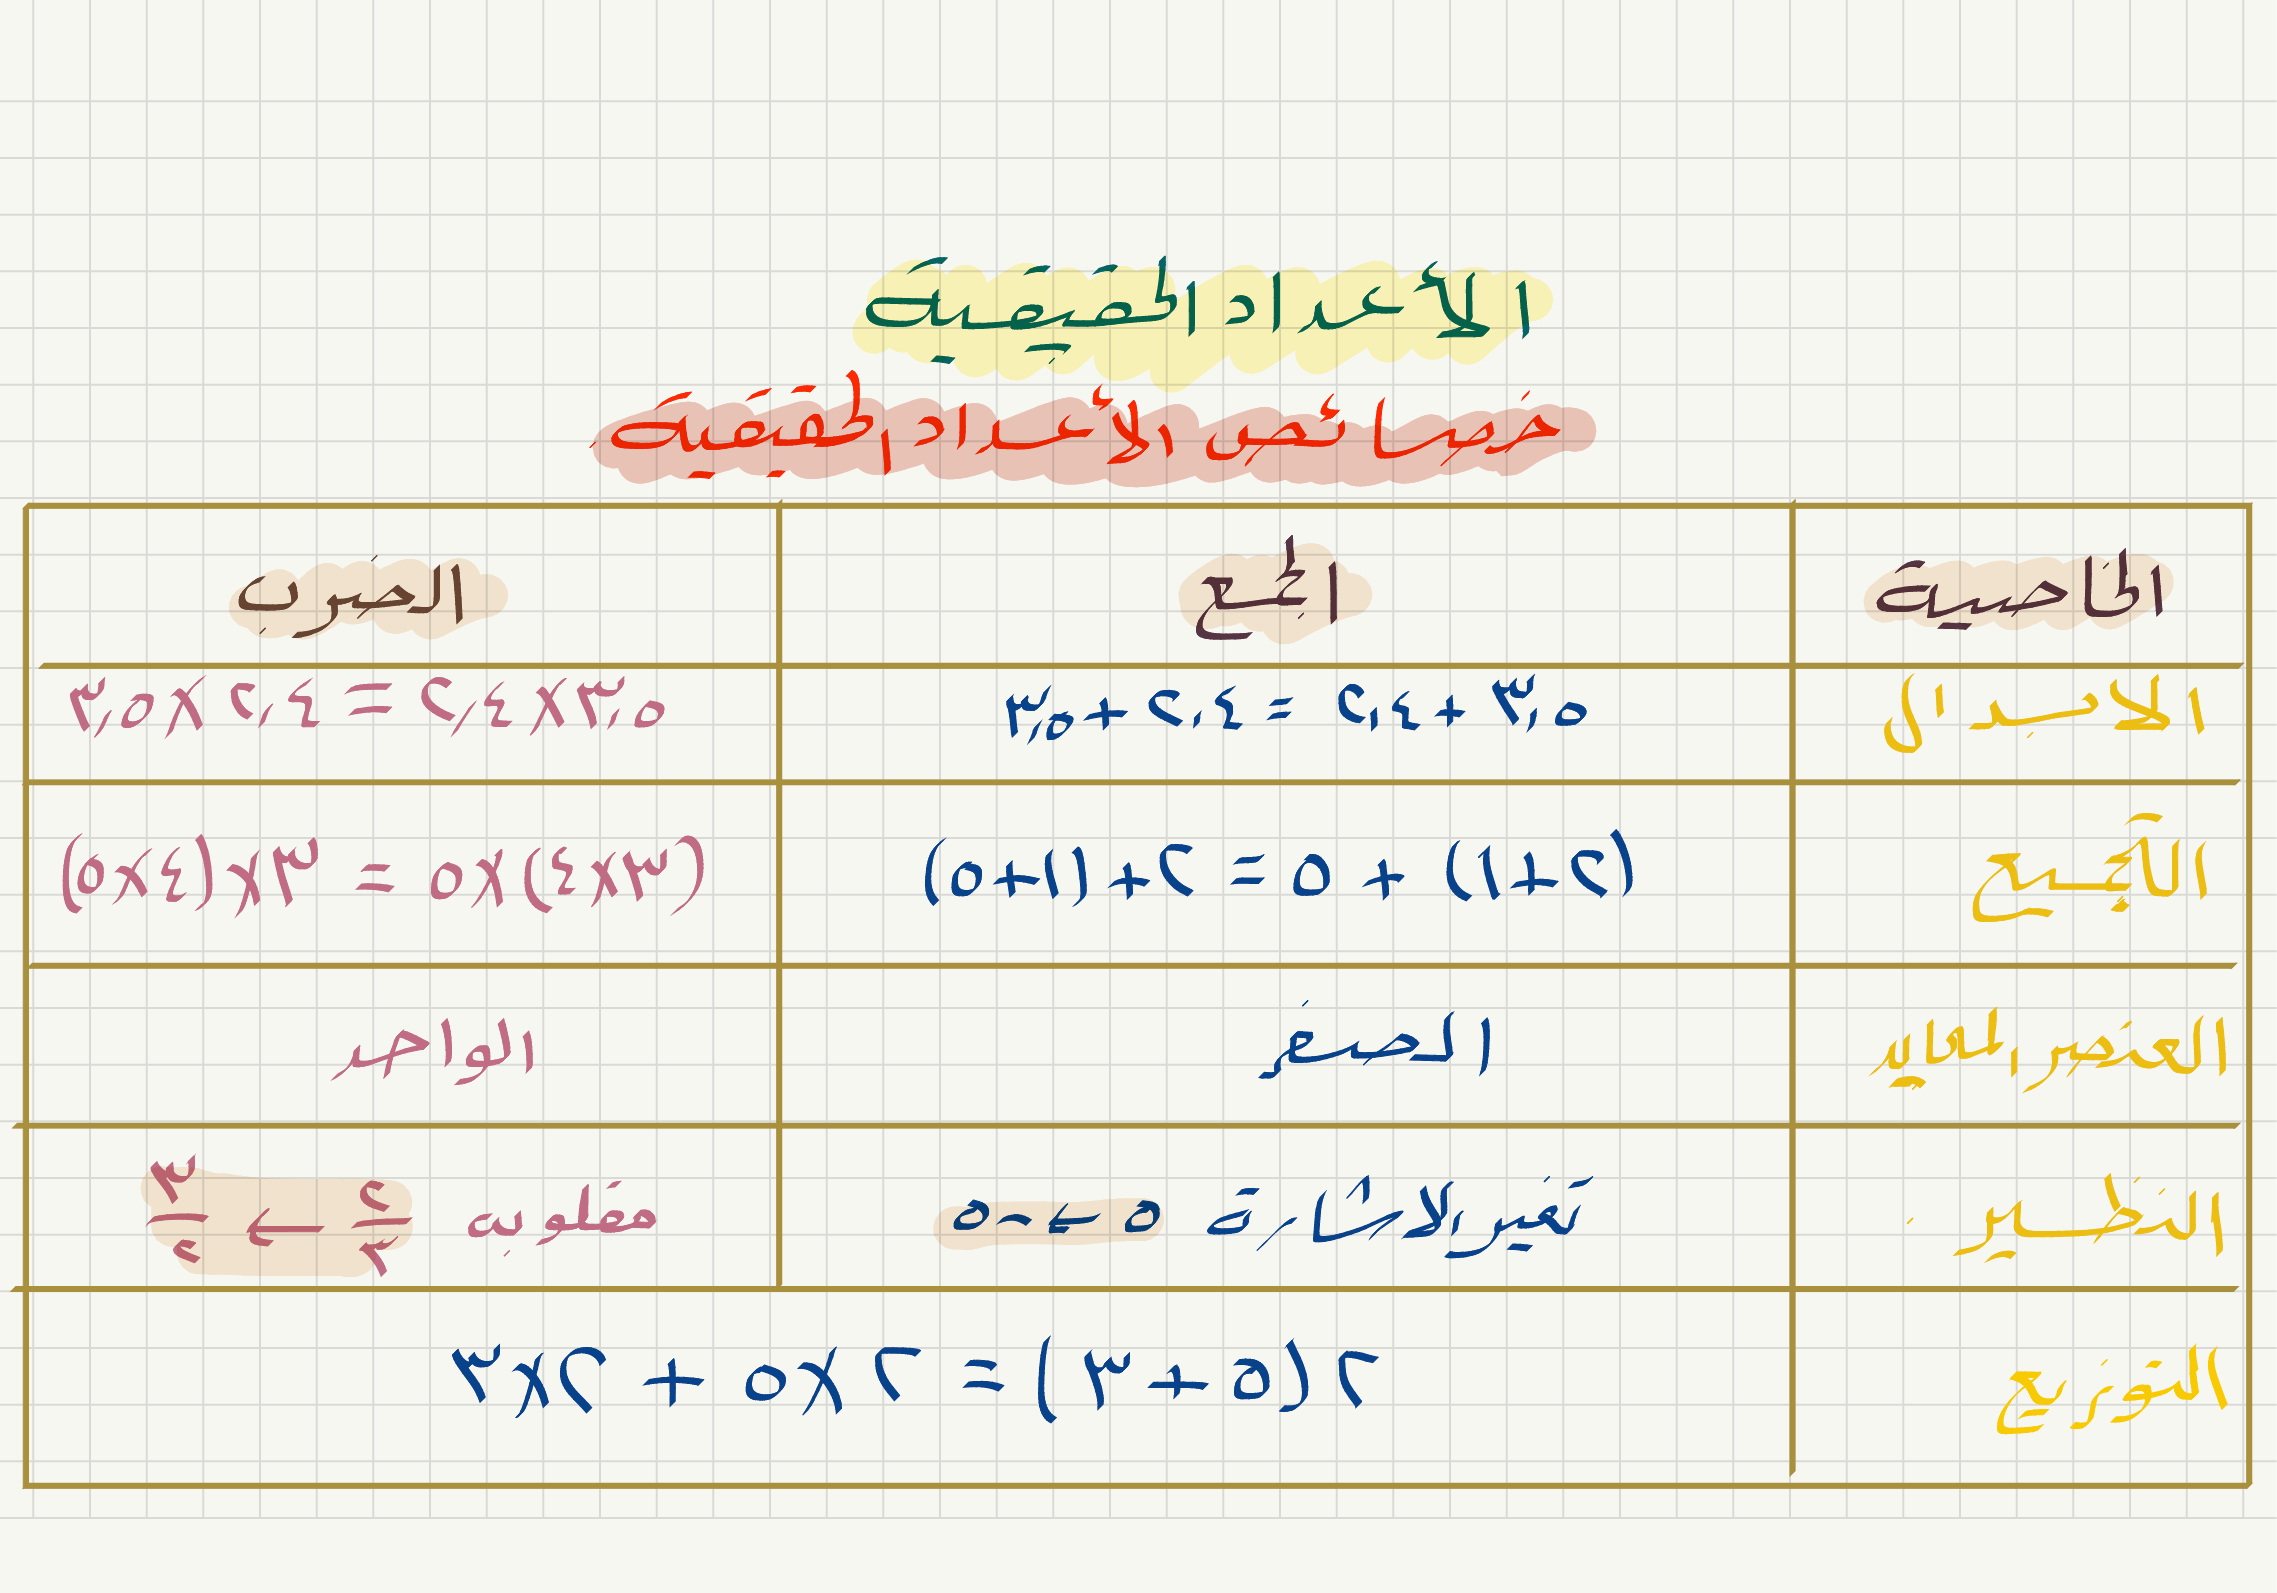 الأعداد الحقيقية
خصائص الأعداد الحقيقية
الخاصية الجمع الضرب
الابدال ٣,٥ + ٢,٤ = ٢,٤ + ٣,٥ ٣,٥ × ٢,٤ = ٢,٤ × ٣,٥
التجميع (٢+١) + ٥ = ٢ + (١+٥) (٣×٤) × ٥ = ٣ × (٤×٥)
العنصر المحايد الصفر الواحد
النظير تغير الاشارة ٥ ← -٥ مقلوبه ٢/٣ ← ٣/٢
التوزيع ٢(٥+٣) = ٢×٥ + ٢×٣